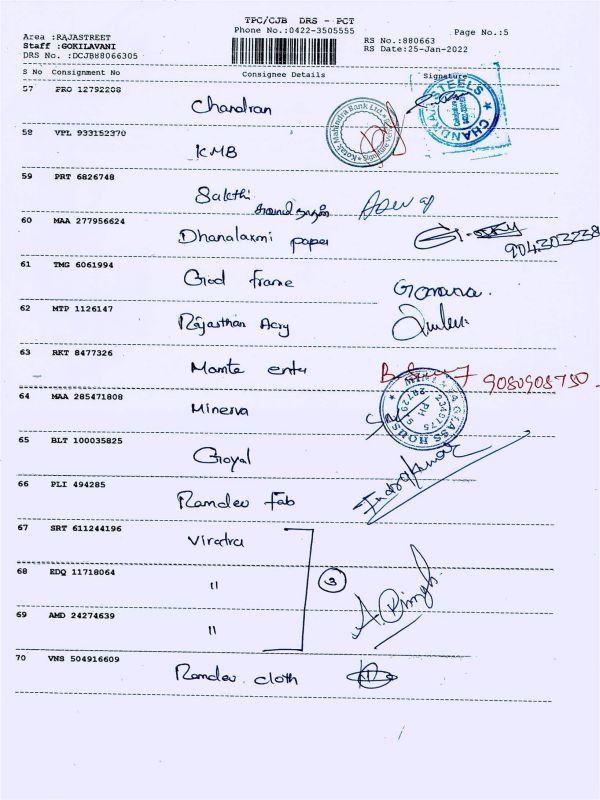 TPC/CJB DRS - PCT
Phone No.:0422-3505555
Page No.:5
Area :RAJASTREET
Staff :GOKILAVANI
DRS No. :DCJBH8066305
RS No.:880663
RS Date:25-Jan-2022
S No Consignment No Consignee Details Signature
57 PRO 12792208
Chandran
CHANDRA STEELS
Kotak Mahindra Bank Ltd
58 VPL 933152370
KMB
59 PRT 6826748
Sakthi
60 MAA 277956624
Dhanalaxmi paper
61 TMG 6061994
God frame
62 MTP 1126147
Rajasthan Acry
63 RKT 8477326
Mamta enter
9080908750
64 MAA 285471808
Minerva
GLASS HOUSE
PH
65 BLT 100035825
Goyal
66 PLI 494285
Ramdev Fab
Indrakumar
67 SRT 611244196
Viratra
68 EDQ 11718064
"
3
69 AMD 24274639
"
A. Singh
70 VNS 504916609
Ramdev cloth